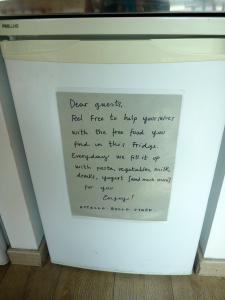 PHILLIPS
Dear guests,
Feel Free to help yourselves
with the free food you
find in this Fridge.
Everyday we fill it up
with pasta, vegetables, milk,
drinks, yogurt (and much more)
for you
Enjoy!